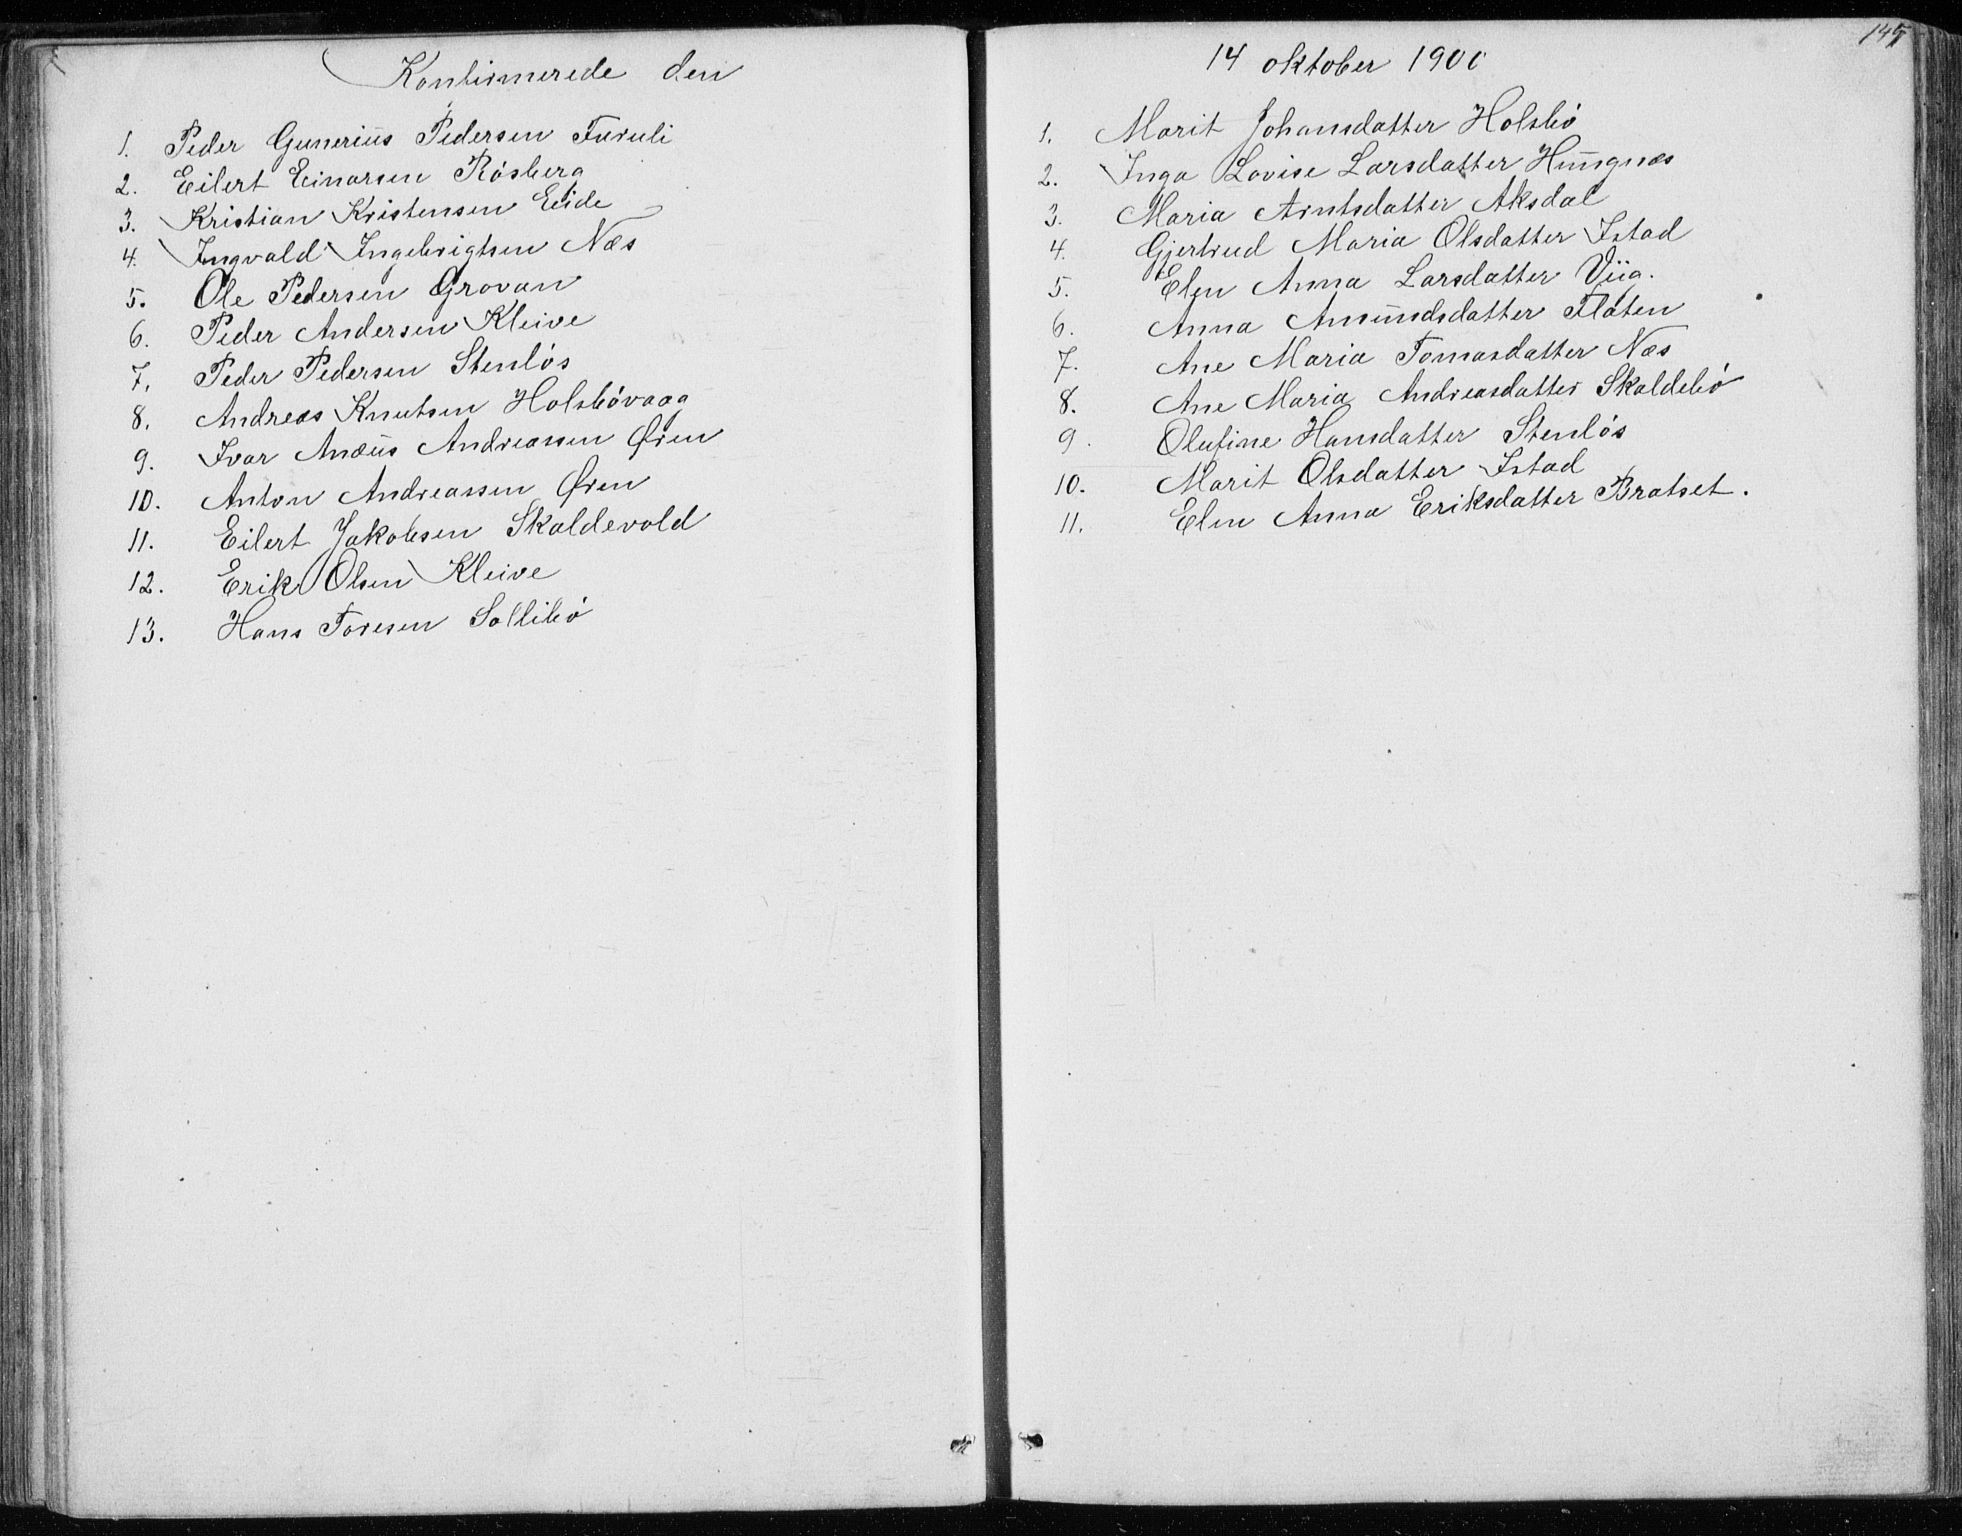 Konfirmerede den
1. Peder Gunerius Pedersen Furuli
2. Eilert Einarsen Røsberg
3. Kristian Kristensen Eide
4. Ingvald Ingebrigtsen Næs
5. Ole Pedersen Grovan
6. Peder Andersen Kleive
7. Peder Pedersen Stenløs
8. Andreas Knutsen Holsbøvaag
9. Ivar Anæus Andreassen Øren
10. Anton Andreassen Øren
11. Eilert Jakobsen Skaldevold
12. Erik Olsen Kleive
13. Hans Toresen Sollibø
14 oktober 1900
1. Marit Johansdatter Holsbø
2. Inga Lovise Larsdatter Hungnæs
3. Maria Arntsdatter Aksdal
4. Gjertrud Maria Olsdatter Istad
5. Elen Anna Larsdatter Viig.
6. Anna Amundsdatter Flaten
7. Ane Maria Tomasdatter Næs
8. Ane Maria Andreasdatter Skaldebø
9. Olufine Hansdatter Stenløs
10. Marit Olsdatter Istad
11. Elen Anna Eriksdatter Bratset.